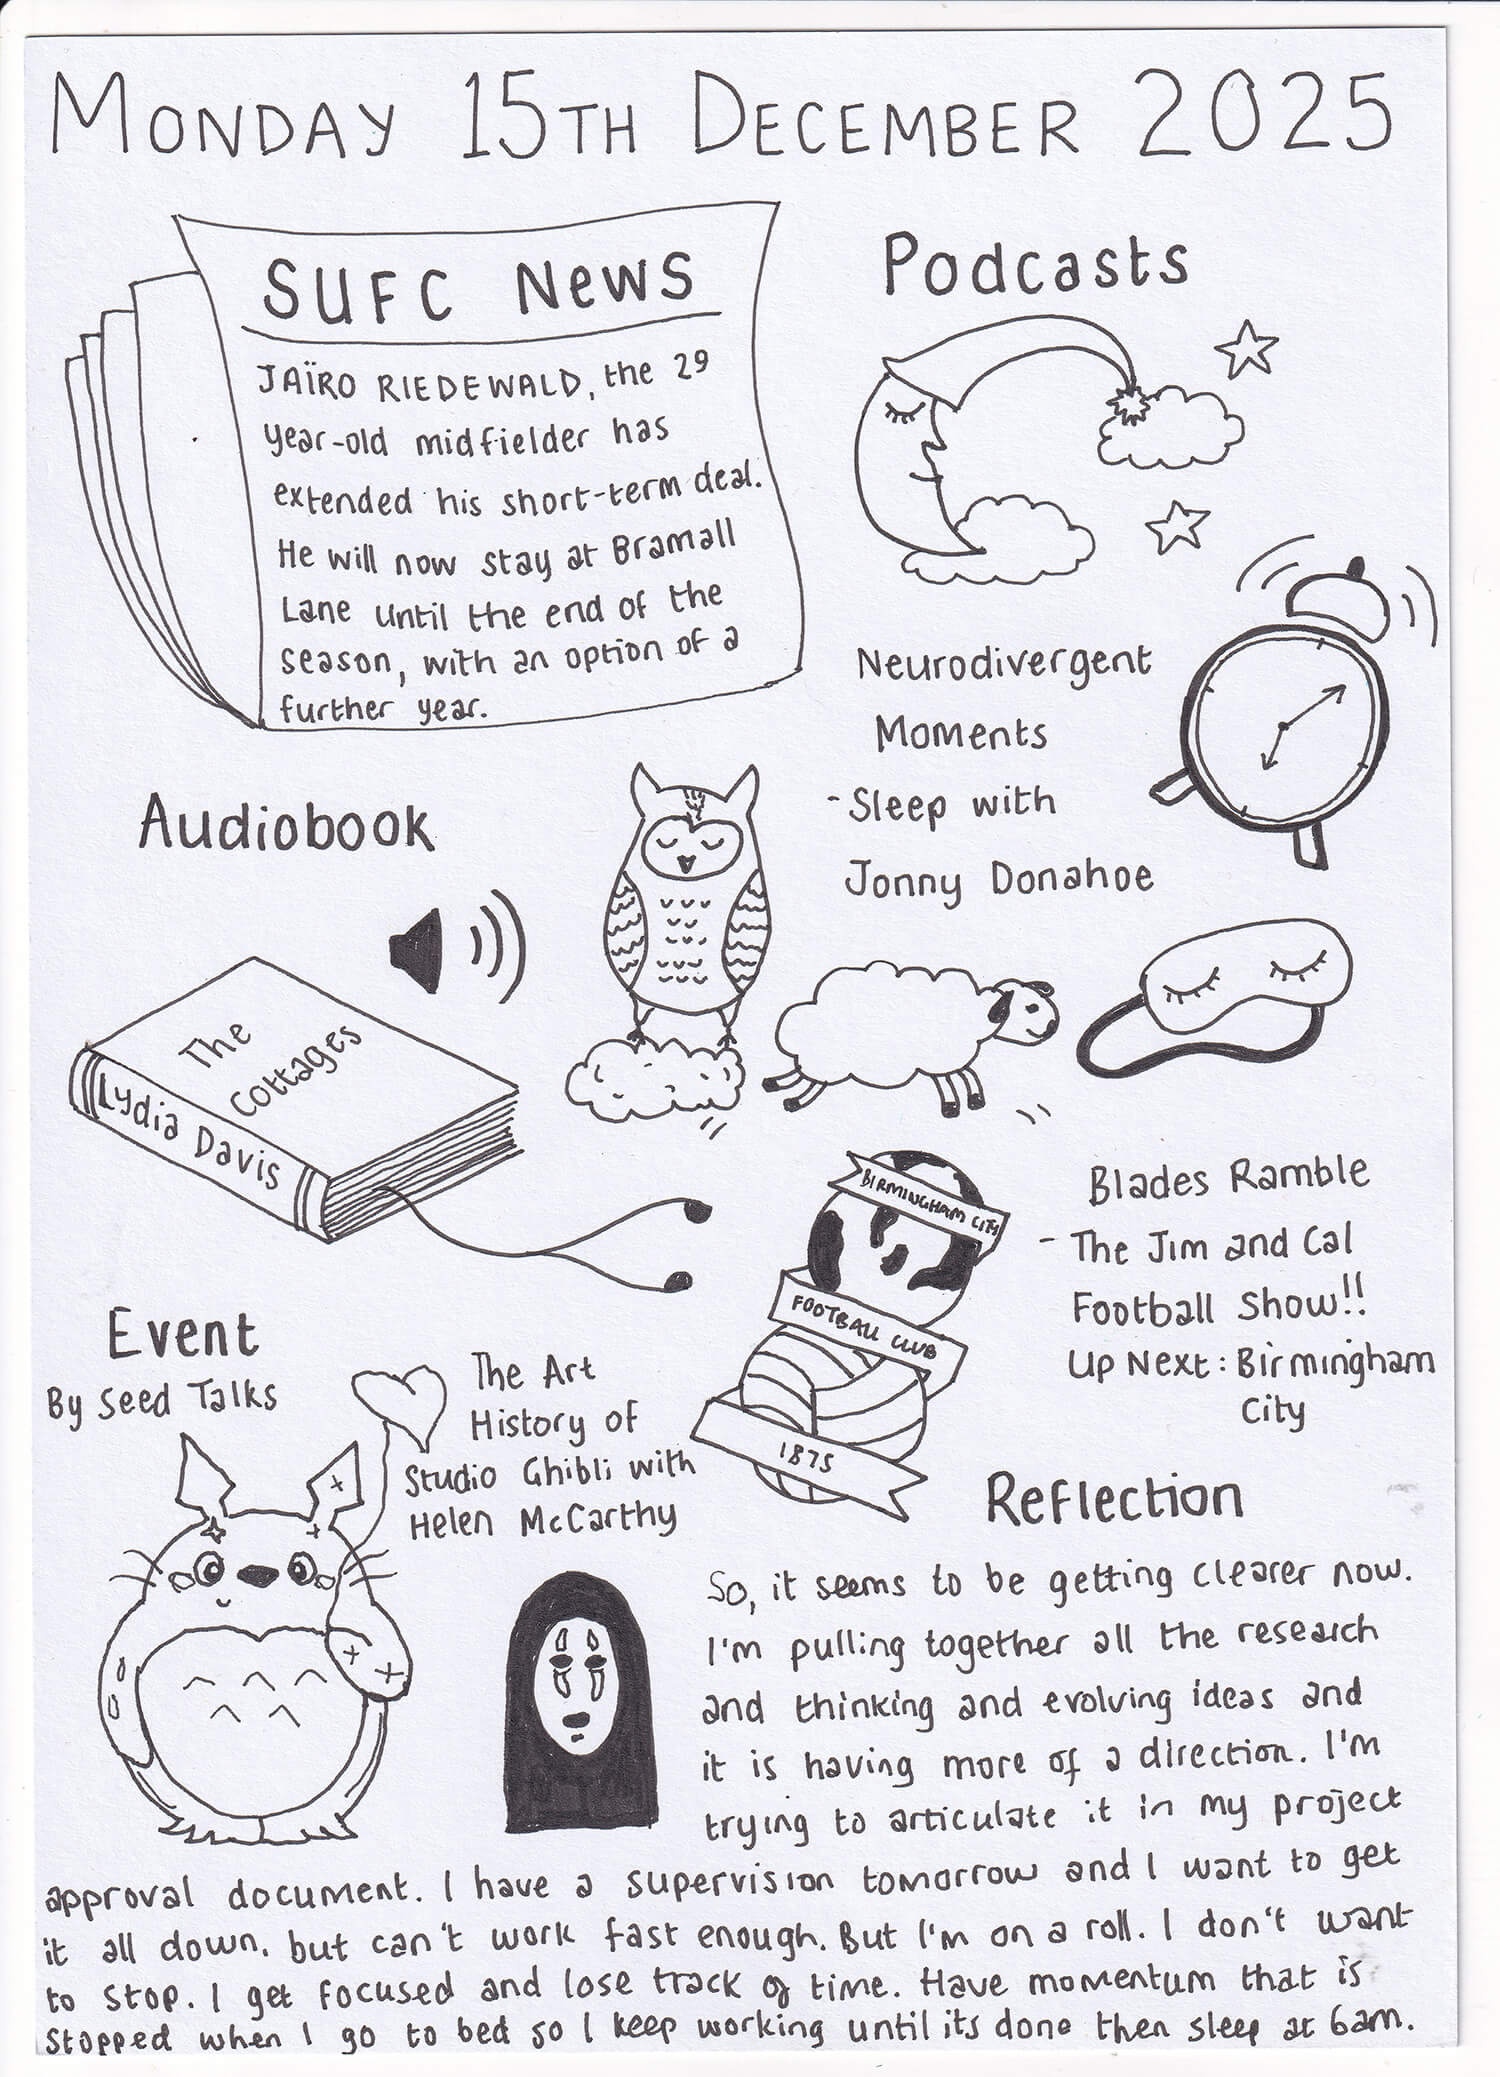 MONDAY 15TH DECEMBER 2025
SUFC NEWS
JAÏRO RIEDEWALD, the 29
year-old midfielder has
extended his short-term deal.
He will now stay at Bramall
Lane until the end of the
season, with an option of a
further year.
Podcasts
Neurodivergent
Moments
- Sleep with
Jonny Donahoe
Audiobook
The
Cottages
Lydia Davis
BIRMINGHAM CITY
FOOTBALL CLUB
1875
Blades Ramble
- The Jim and Cal
Football Show!!
Up Next: Birmingham
City
Event
By Seed Talks
The Art
History of
Studio Ghibli with
Helen McCarthy
Reflection
So, it seems to be getting clearer now.
I'm pulling together all the research
and thinking and evolving ideas and
it is having more of a direction. I'm
trying to articulate it in my project
approval document. I have a supervision tomorrow and I want to get
it all down, but can't work fast enough. But I'm on a roll. I don't want
to stop. I get focused and lose track of time. Have momentum that is
stopped when I go to bed so I keep working until its done then sleep at 6am.